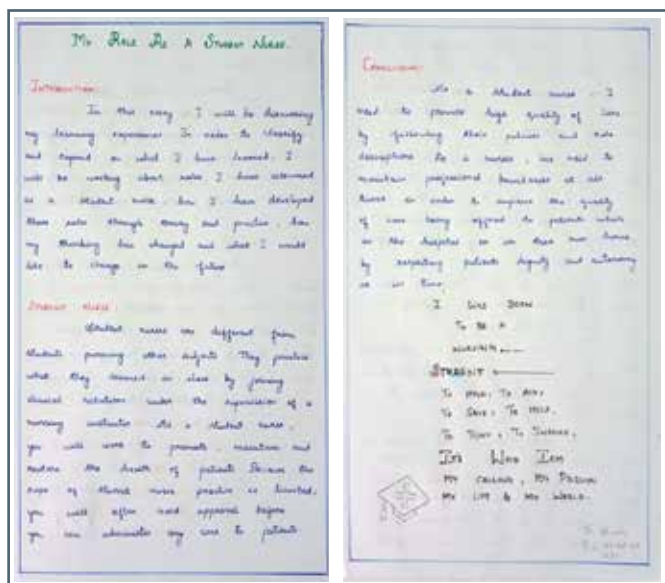 MY ROLE AS A STUDENT NURSE.
INTRODUCTION:
In this essay, I will be discussing
my learning experiences In order to identify
and expand on what I have learned. I
will be writing about roles I have
as a student nurse, how I have developed
these roles through theory and practice, how
my thinking has changed and what I would
like to change in the future
STUDENT NURSE:
Student nurses are different from
students pursuing other subjects They practice
what they learned in class by joining
clinical rotations under the supervision of a
nursing instructor As a student nurse,
you will work to promote, maintain and
restore the health of patients Because the
scope of student nurse practice is limited,
you will often need approval before
you can administer any care to patients
CONCLUSION:
As a student nurse, I
need to provide high quality of care
by following their policies and role
descriptions As a nurse, we need to
maintain professional boundaries at all
times in order to improve the quality
of care being offered to patients
in the hospital or in their own homes
by respecting patients dignity and autonomy
at all time.
I WAS BORN
TO BE A
NURSING
STUDENT
TO HOLD, TO AID,
TO SAVE, TO HELP,
TO , TO INSPIRE,
ITS WHO IAM
MY CALLING, MY PASSION
MY LIFE & MY WORLD.